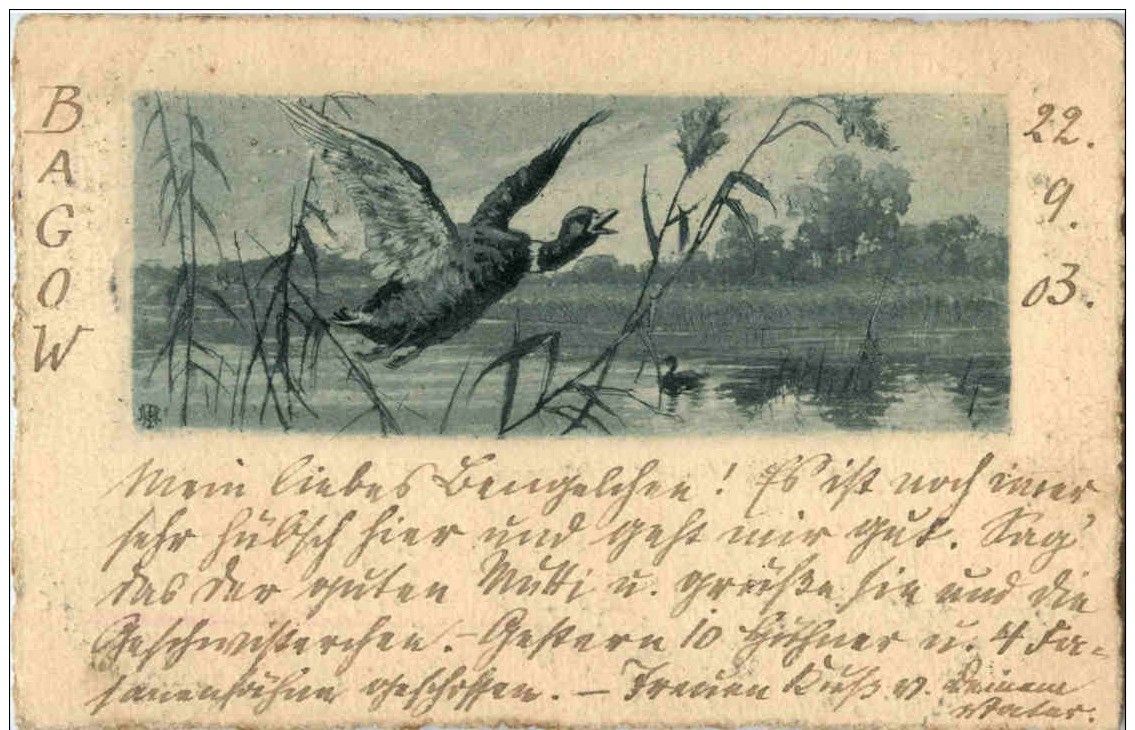 BAGOW
22.
9.
03.
Mein liebes Bengelchen! Es ist noch imer
sehr hübsch hier und geht mir gut. Sag'
das der guten Mutti u. grüße sie und die
Geschwisterchen. – Gestern 10 Hühner u. 4 Fa-
sanenhähne geschossen. – Treuen Kuß v. Deinem
Vater.